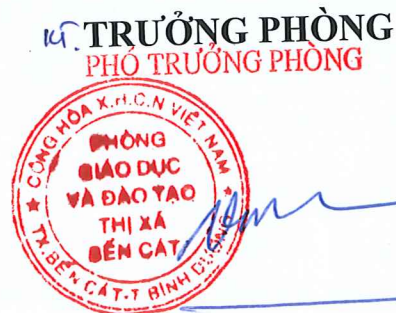 KT. TRƯỞNG PHÒNG
PHÓ TRƯỞNG PHÒNG
CỘNG HÒA X.H.C.N VIỆT NAM
PHÒNG
GIÁO DỤC
VÀ ĐÀO TẠO
THỊ XÃ
BẾN CÁT
TX BẾN CÁT-T BÌNH DƯƠNG